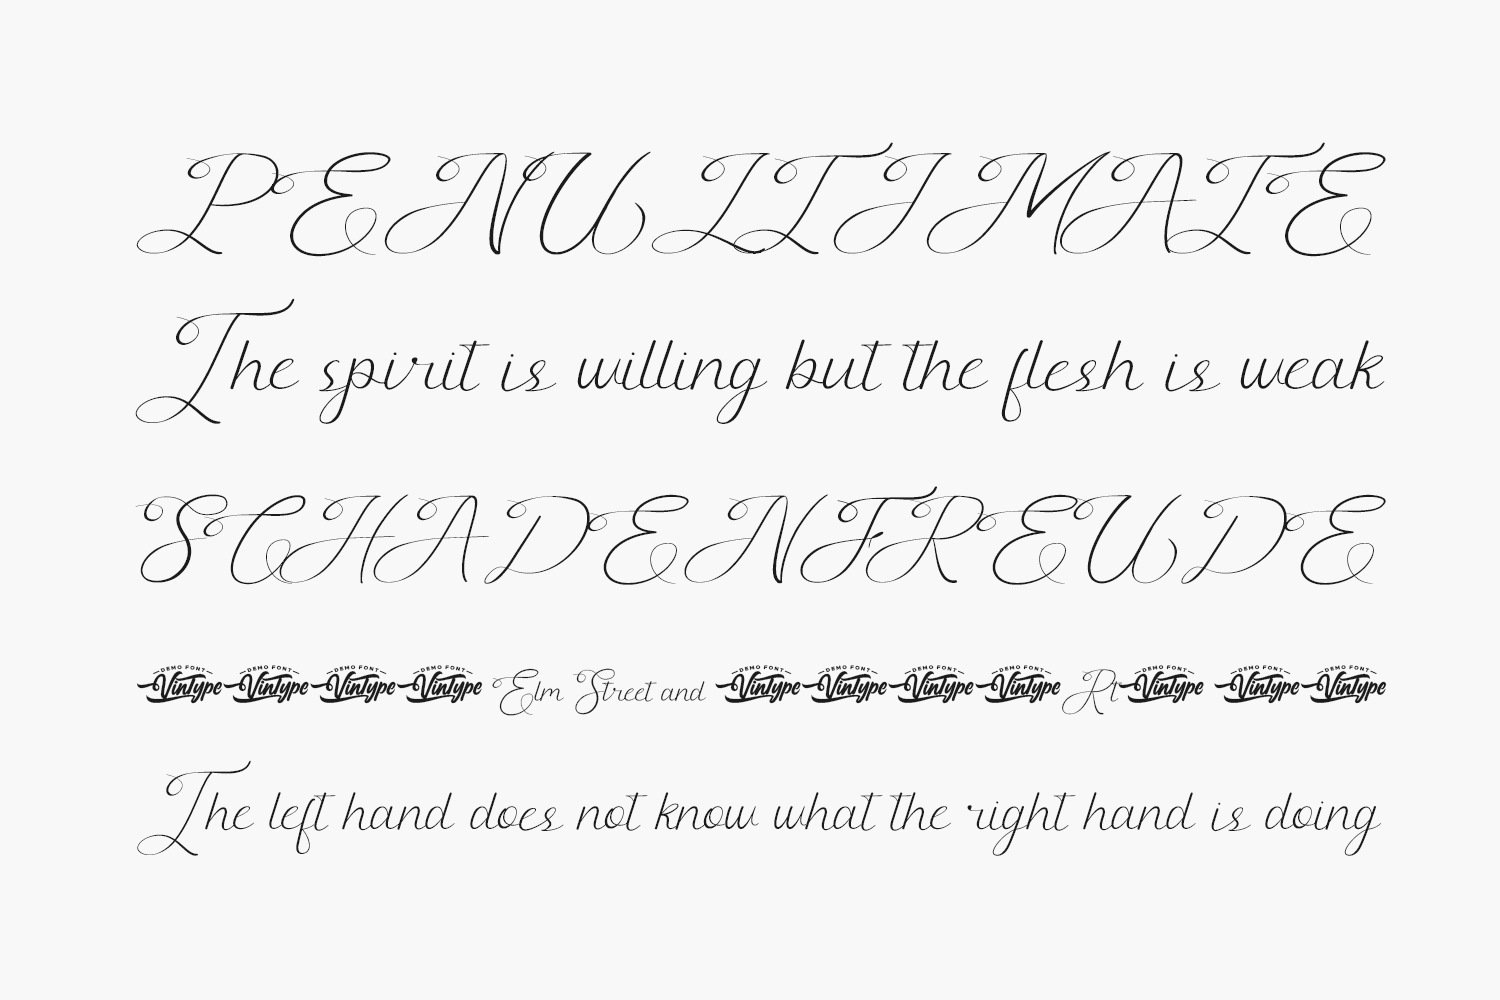 PENULTIMATE
The spirit is willing but the flesh is weak
SCHADENFREUDE
DEMO FONT Vintype DEMO FONT Vintype DEMO FONT Vintype DEMO FONT Vintype Elm Street and DEMO FONT Vintype DEMO FONT Vintype DEMO FONT Vintype DEMO FONT Vintype Rt DEMO FONT Vintype DEMO FONT Vintype DEMO FONT Vintype
The left hand does not know what the right hand is doing